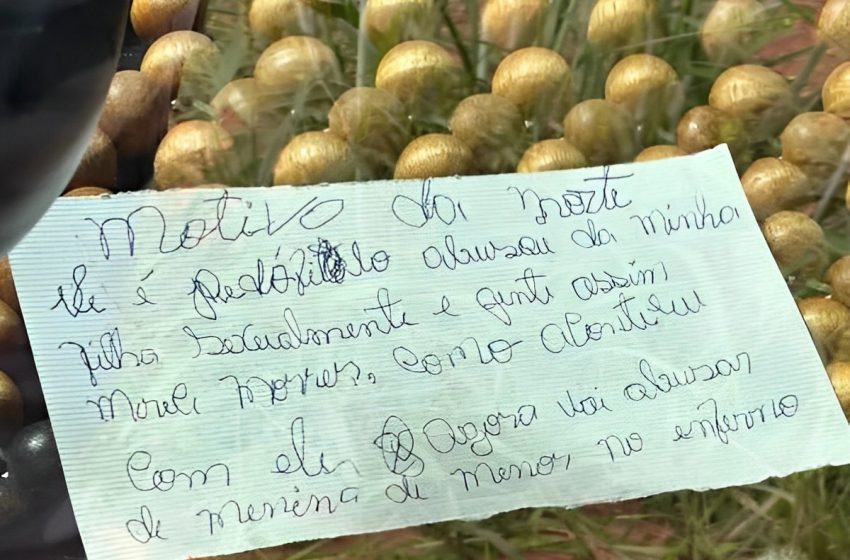 Motivo da morte
Ele é pedófilo abusou da minha
filha sexualmente e gente assim
morre, como aconteceu
com ele Agora vai abusar
de menina de menor no inferno